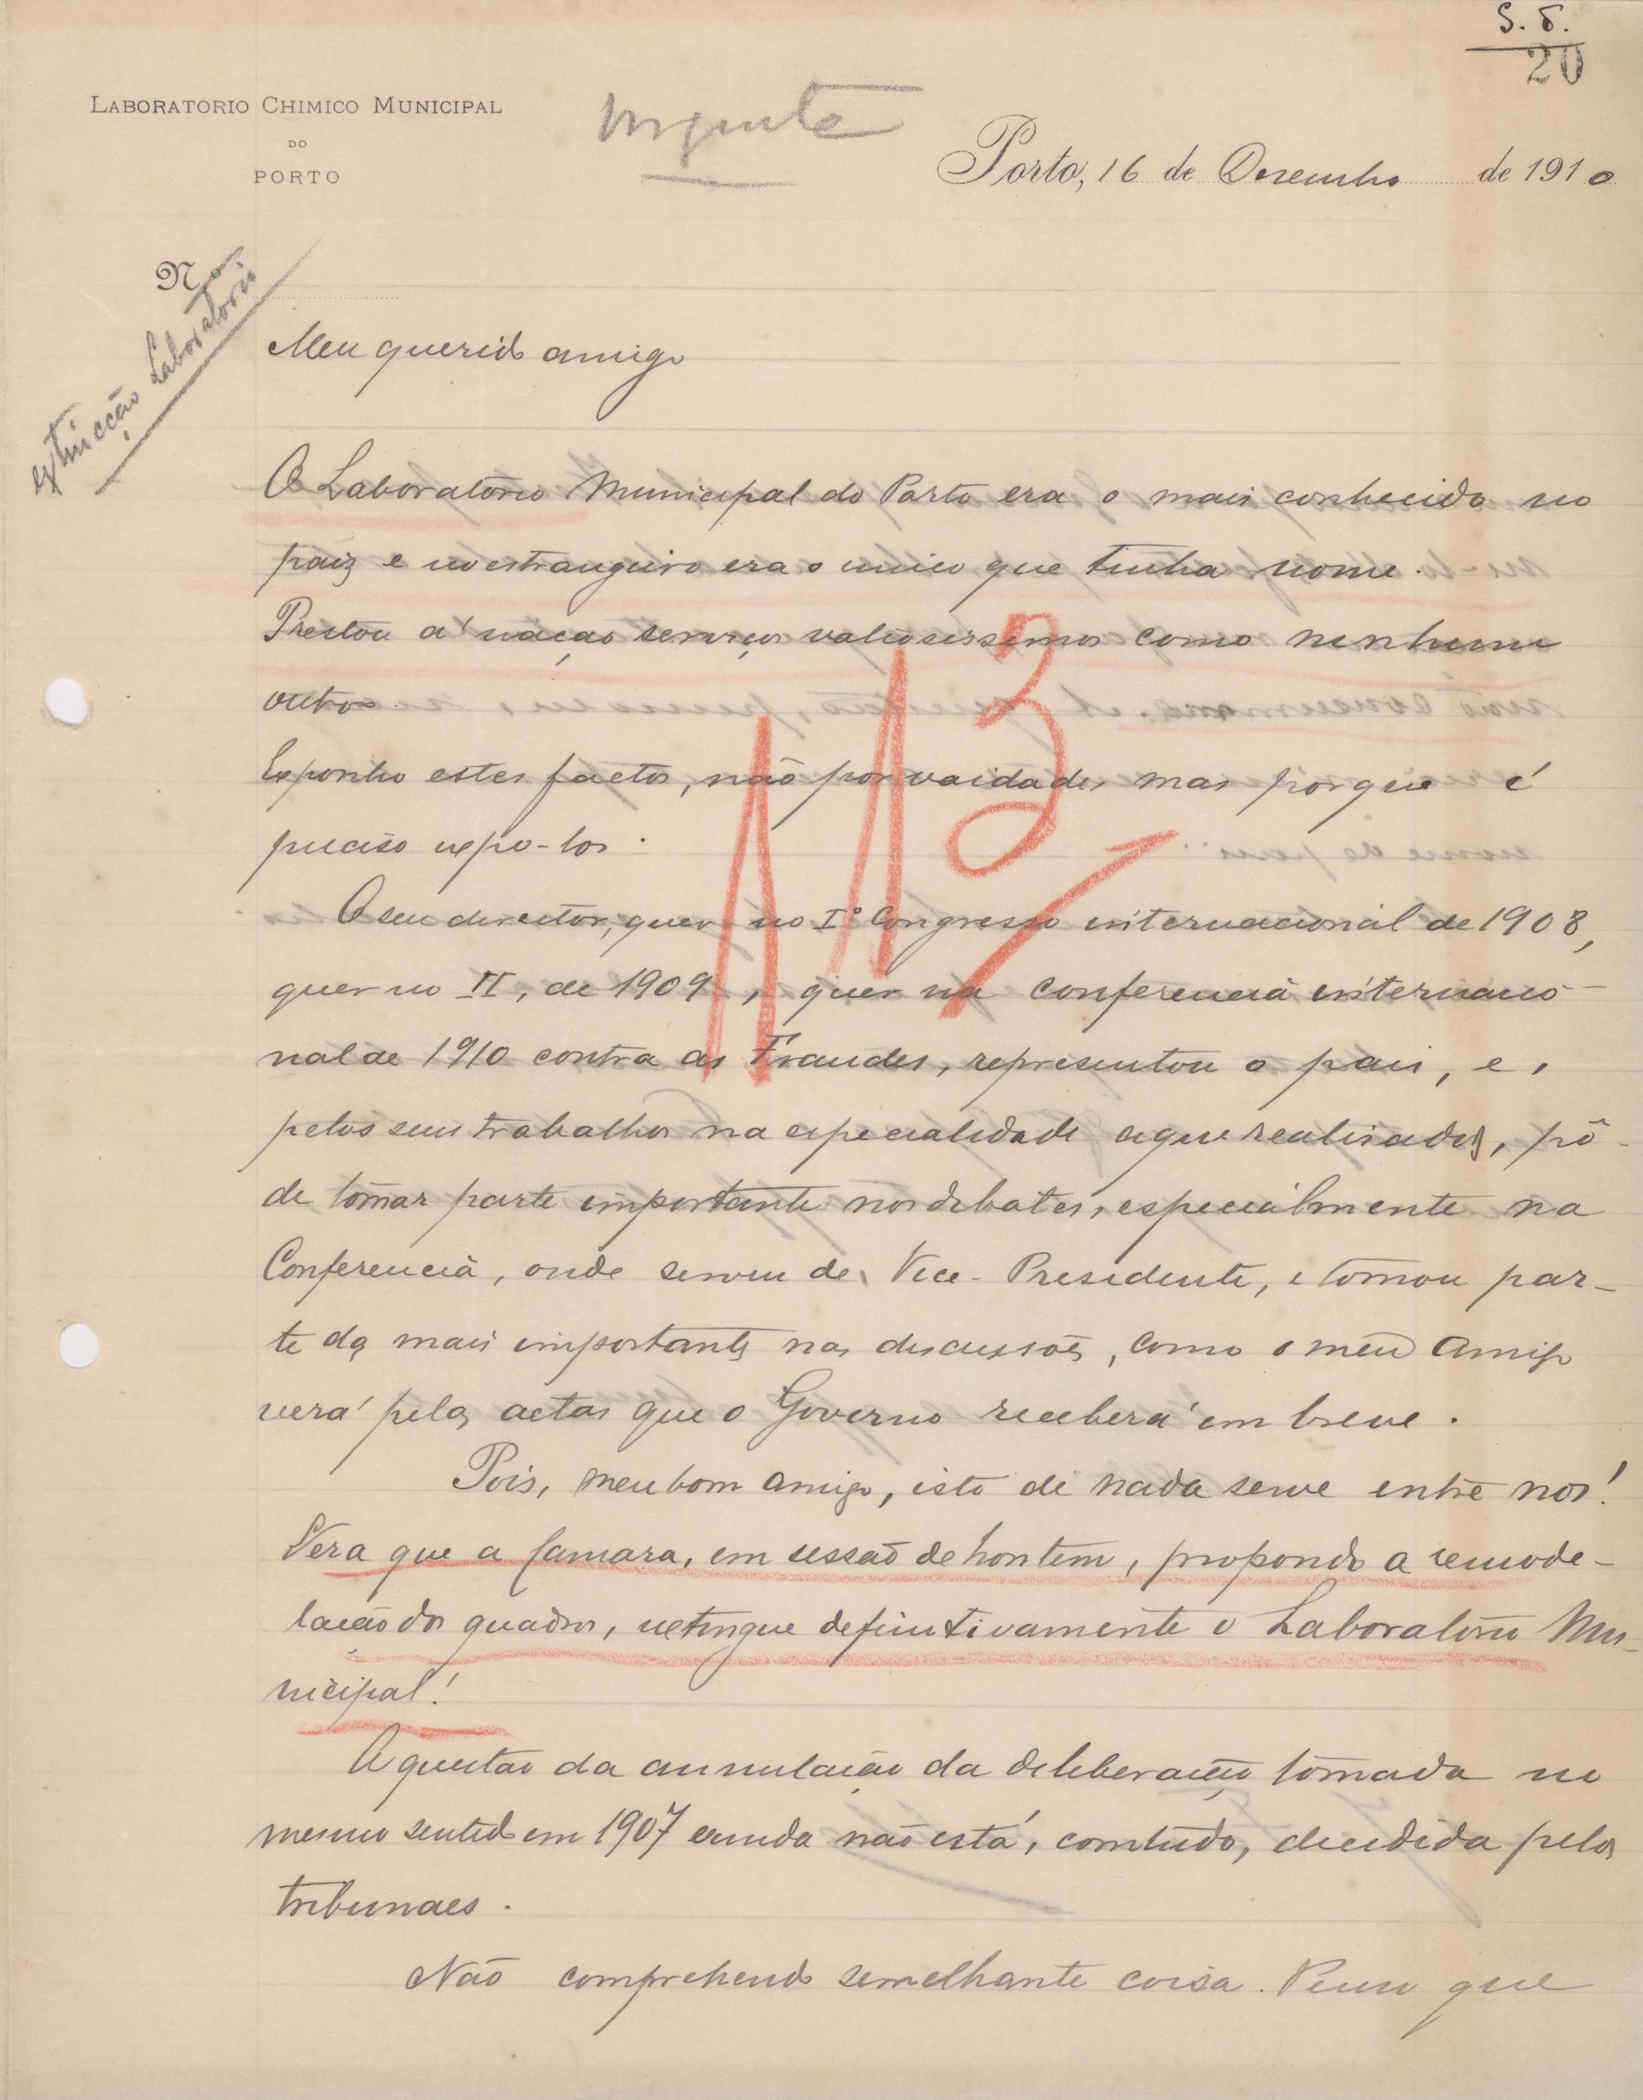 S. S.
20
LABORATORIO CHIMICO MUNICIPAL
DO
PORTO
Urgente
Porto, 16 de Dezembro de 1910
Nº
extincção Laboratorio
Meu querido amigo
O Laboratorio Municipal do Porto era o mais conhecido no
paiz e no estrangeiro era o unico que tinha nome.
Prestou á nação serviços valiosissimos como nenhum
outro.
Exponho estes factos, não por vaidade, mas porque é
preciso expo-los.
113
O seu director, quer no Iº Congresso internacional de 1908,
quer no II, de 1909, quer na conferencia internacio-
nal de 1910 contra as Fraudes, representou o pais, e,
pelos seus trabalhos na especialidade aqui realisados, pô-
de tomar parte importante nos debates, especialmente na
Conferencia, onde serviu de Vice-Presidente, e tomou par-
te das mais importantes nas discussões, como o meu amigo
verá pelas actas que o Governo receberá em breve.
Pois, meu bom amigo, isto de nada serve entre nos!
Vera que a Camara, em sessão de hontem, propondo a remode-
lação dos quadros, extingue definitivamente o Laboratorio Mu-
nicipal!
A questão da annulação da deliberação tomada no
mesmo sentido em 1907 ainda não está, comtudo, decidida pelos
tribunaes.
Não comprehendo semelhante coisa. Penso que